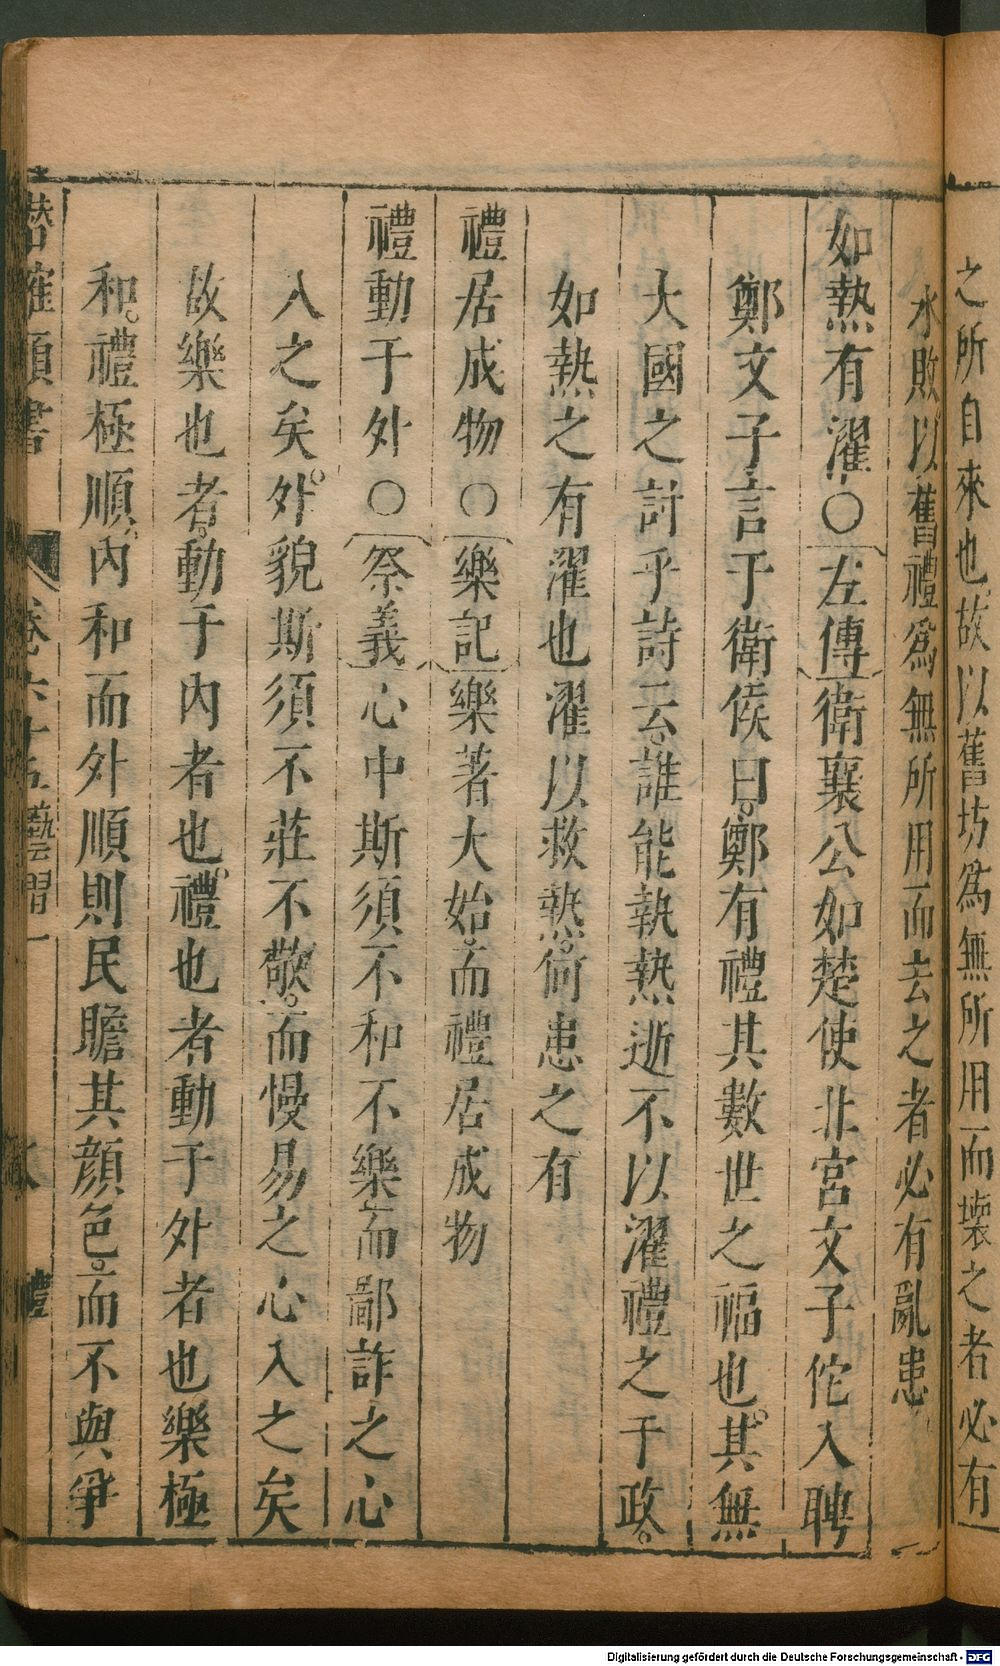 之所自來也故以舊坊為無所用而壞之者必有
水敗以舊禮為無所用而去之者必有亂患
如熱有濯○左傳衛襄公如楚使北宮文子佗入聘
鄭文子言于衛侯曰鄭有禮其數世之福也其無
大國之討乎詩云誰能執熱逝不以濯禮之于政
如熱之有濯也濯以救熱何患之有
禮居成物○樂記樂著大始而禮居成物
禮動于外○祭義心中斯須不和不樂而鄙詐之心
入之矣外貌斯須不莊不敬而慢易之心入之矣
故樂也者動于內者也禮也者動于外者也樂極
和禮極順內和而外順則民瞻其顏色而不與爭
潛確類書
卷六十五 藝習一
禮
Digitalisierung gefördert durch die Deutsche Forschungsgemeinschaft - DFG